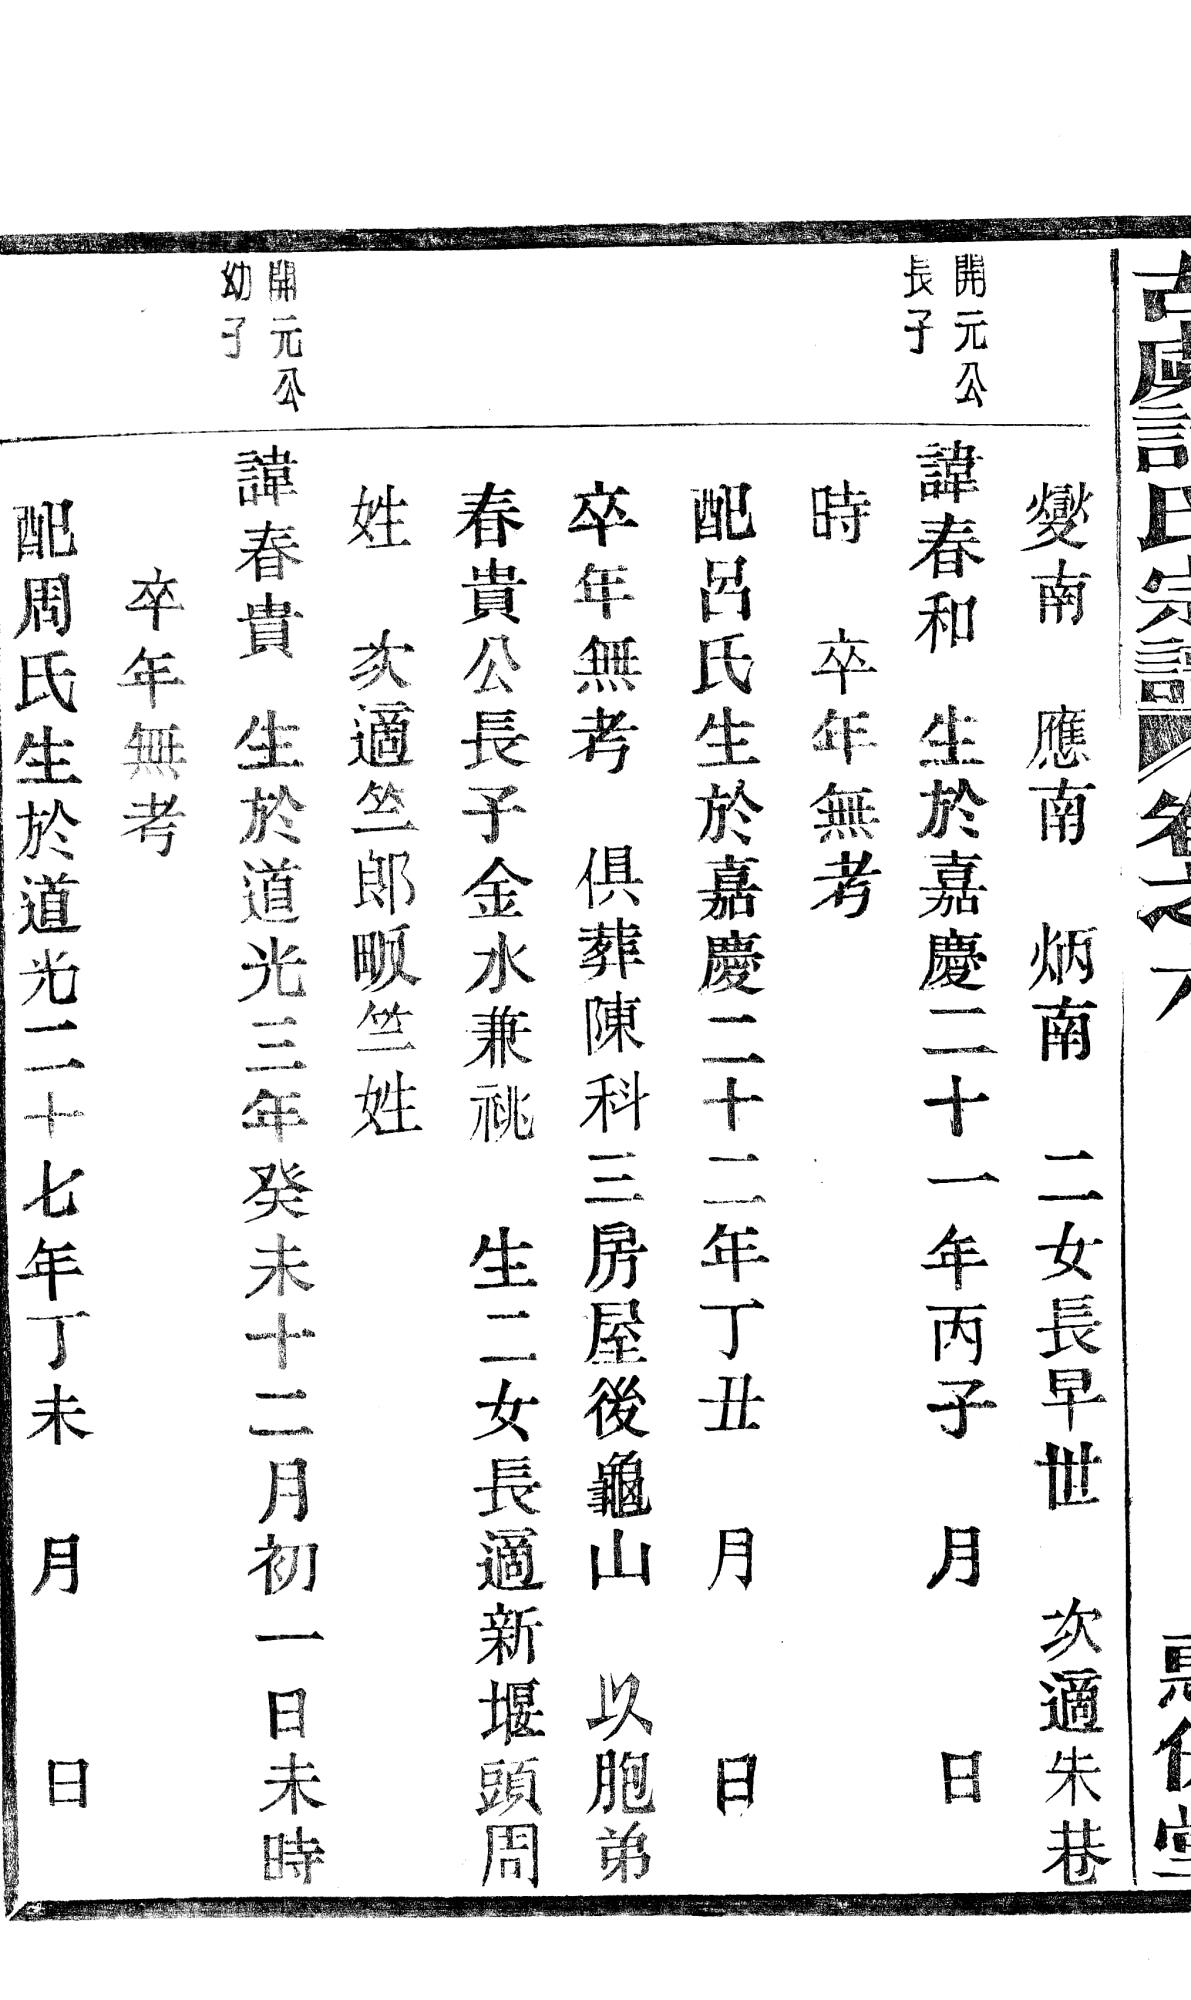 古虞許氏宗譜 卷之
燮南 應南 炳南 二女長早世 次適朱巷
開元公
長子
諱春和 生於嘉慶二十一年丙子 月 日
時 卒年無考
配呂氏生於嘉慶二十二年丁丑 月 日
卒年無考 俱葬陳科三房屋後龜山 以胞弟
春貴公長子金水兼祧 生二女長適新堰頭周
姓 次適竺郎畈竺姓
開元公
幼子
諱春貴 生於道光三年癸未十二月初一日未時
卒年無考
配周氏生於道光二十七年丁未 月 日